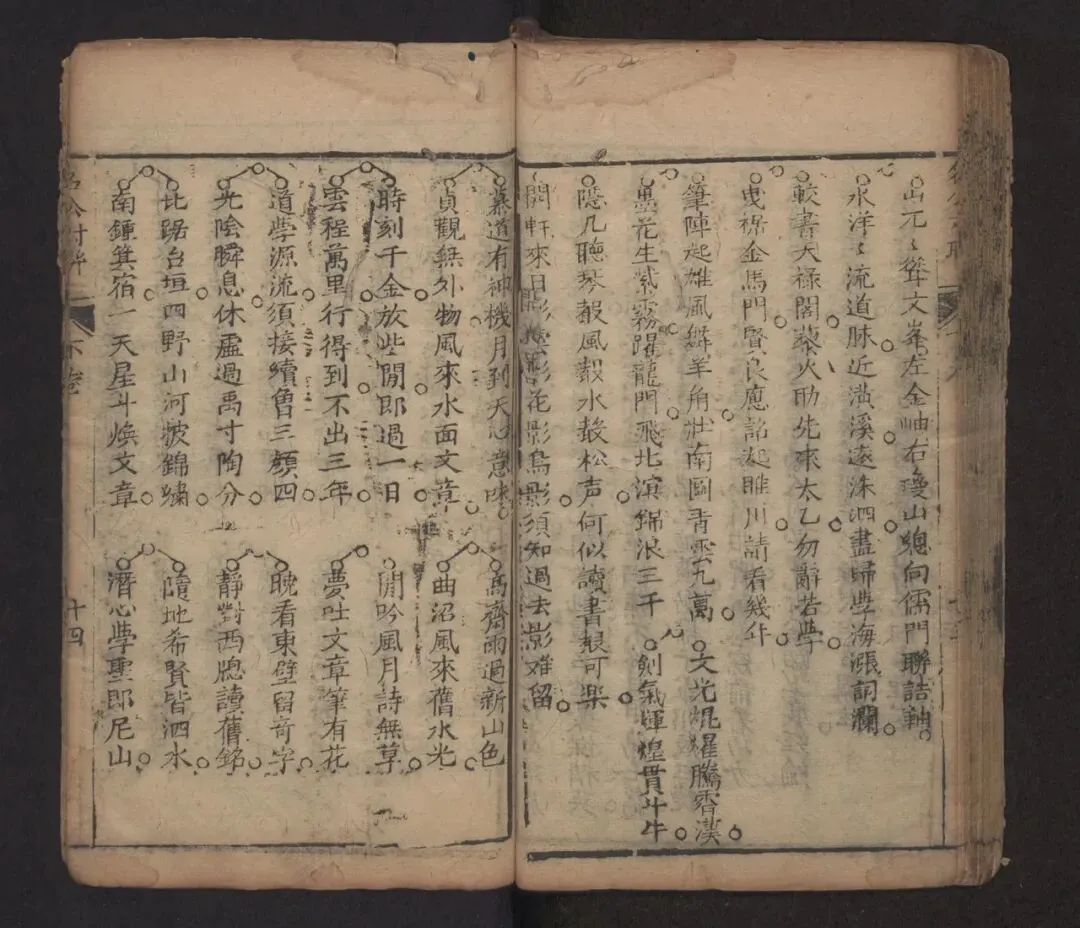 山兀〻聳文峯左金岫右瓊山總向儒門聯誥軸
水洋〻流道脉近潢溪遠洙泗盡歸學海漲詞瀾
較書天禄閣藜火助先來太乙勿辭若學
曳裾金馬門賢良應詔起睢川請看幾斗
筆陣起雄風縣羊角壯南圖青雲九萬
文光焜耀騰霄漢
墨花生紫霧躍龍門飛北滨錦浪三千
劍氣輝煌貫斗牛
隱几聽琴聲風聲水聲松声何似讀書聲可樂
開軒來日影雲影花影鳥影須知過去影难留
慕道有神機月到天心意味
貞觀無外物風來水面文章
時刻千金放些閒即過一日
雲程萬里行得到不出三年
道學源流須接續魯三顏四
光陰瞬息休虛過禹寸陶分
北踞台垣四野山河披錦繡
南鍾箕宿一天星斗煥文章
高齋雨過新山色
曲沼風來舊水光
閒吟風月詩無草
夢吐文章筆有花
晩看東壁留奇字
靜對西牕讀舊銘
隨地希賢皆泗水
潛心學聖即尼山
下卷
十四